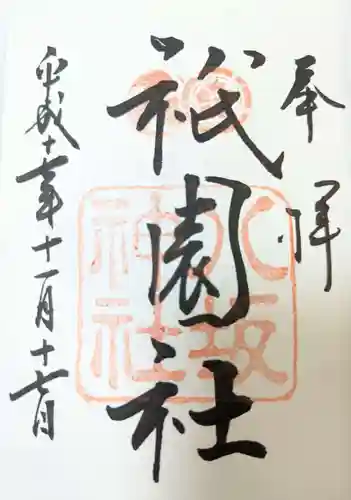 奉拝
祇園社
八坂神社
平成十六年十一月十七日